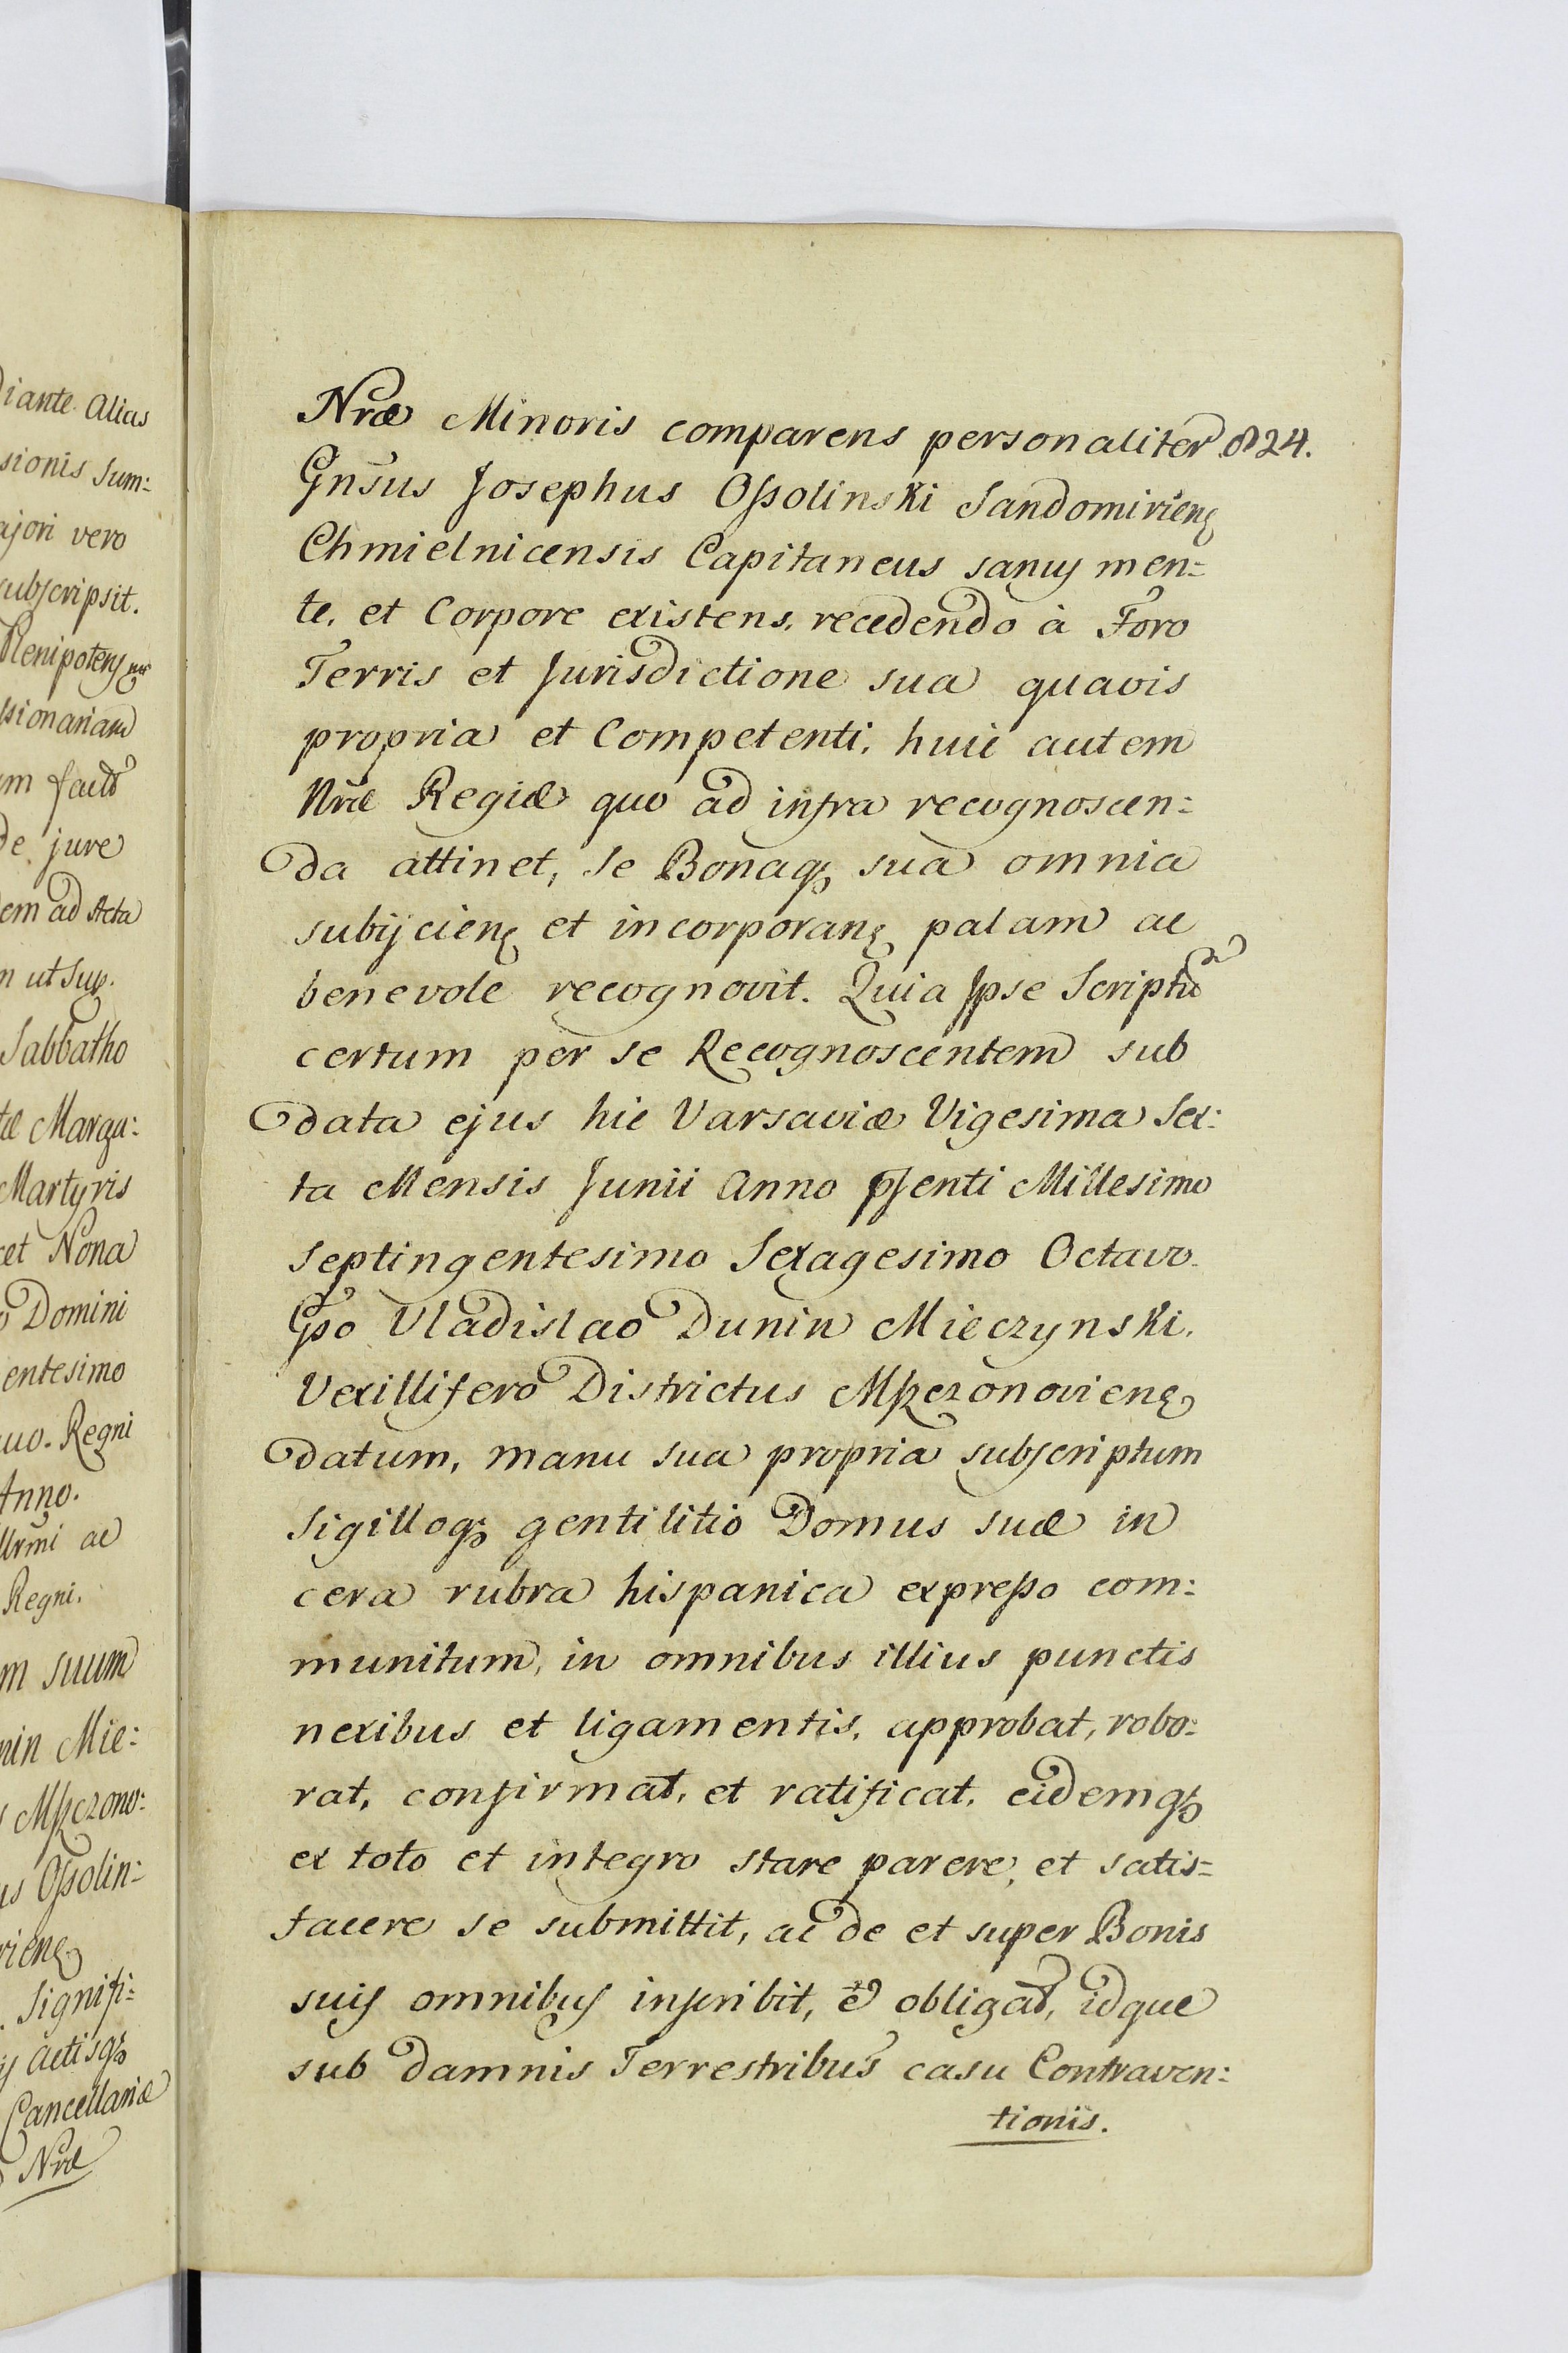 diante. Alias
sionis Sum:
ajori vero
subscripsit.
Plenipotens
ssionariam
um facto
de jure
dem ad Acta
m ut Sup.
Sabbatho
tæ Marga:
Martyris
cet Nona
o Domini
entesimo
uo. Regni
Anno.
llrmi ac
Regni.
m suum
nin Mie:
s Mszczono:
us Ossolin:
rieng
. Signifi:
ij Actisq3
Cancellariæ
Nræ
Nræ Minoris comparens personaliter 824.
Gnsus Josephus Ossolinski Sandomirieng
Chmielnicensis Capitaneus sanus men:
te, et Corpore existens, recedendo à Foro
Terris et Jurisdictione sua quavis
propria et Competenti, huic autem
Nræ Regiæ quo ad infra recognoscen:
da attinet, Se Bonaq3 sua omnia
subijcieng et incorporang palam ac
benevole recognovit. Quia Ipse Scriptū
certum per se Recognoscentem sub
data ejus hic Varsaviæ Vigesima Sex:
ta Mensis Junii Anno psenti Millesimo
Septingentesimo Sexagesimo Octavo.
Gso Vladislao Dunin Mieczynski.
Vexillifero Districtus Mszczonovieng
datum, manu sua propria subscriptum
Sigilloq3 gentilitio Domus suæ in
cera rubra hispanica expresso com:
munitum, in omnibus illius punctis
nexibus et ligamentis, approbat, robo:
rat, confirmat, et ratificat, eidemq3
ex toto et integro stare parere, et satis=
facere se submittit, ac de et super Bonis
suis omnibus inscribit, et obligat, idque
sub damnis Terrestribus casu Contraven:
tionis.